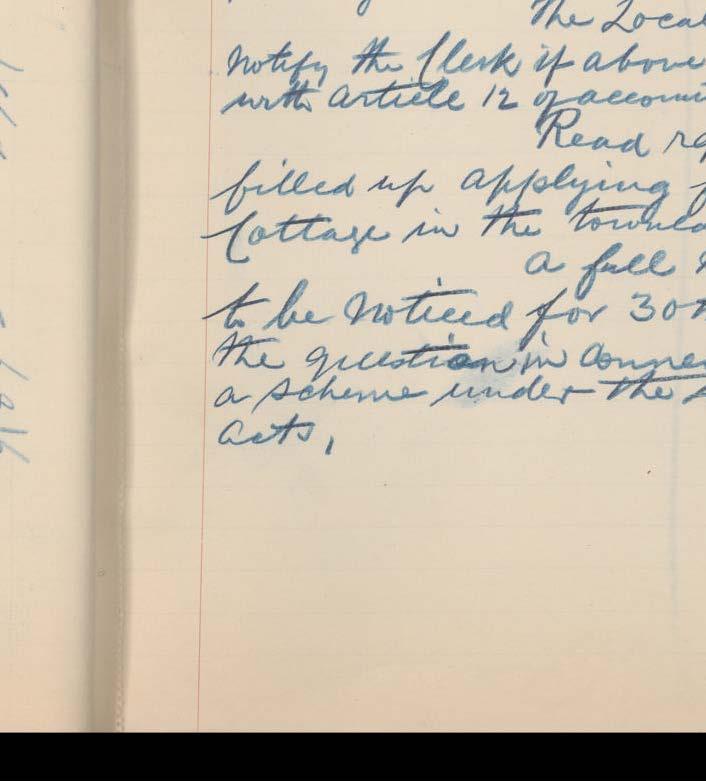 The Local
notify the Clerk if above
with Article 12 of account
Read
filled up applying
Cottage in the townla
a full
to be noticed for 30
the question in Connec
a scheme under the
acts,